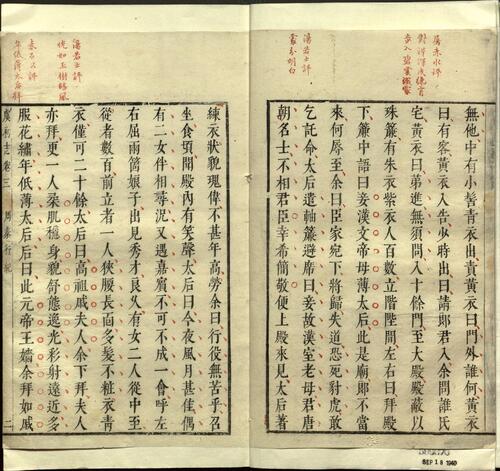 屠赤水評
對得渾成總爲
奇入碧雲霄
湯若士評
叢台明白
無他中有小髻青衣出責黃衣曰門外誰何黃衣
曰有客黃衣入告少時出曰請郎君入余問誰氏
宅黃衣曰弟進無須問入十餘門至大殿殿蔽以
珠簾有朱衣紫衣人百數立階陛間左右曰拜殿
下簾中語曰妾漢文帝母薄太后此是廟郎不當
來何辱至余曰臣家宛下將歸失道恐死豺虎敢
乞託命太后遣軸簾避席曰妾故漢室老母君唐
朝名士不相君臣幸希簡敬便上殿來見太后著
湯若士評
恍如玉樹臨風
練衣狀貌瑰偉不甚年高勞余曰行役無苦乎召
坐食頃聞殿內有笑聲太后曰今夜風月甚佳偶
有二女件相尋況又遇嘉賓不可不成一會呼左
右屈兩箇娘子出見秀才良乆有女二人從中至
從者數百前立者一人狹腰長面多髮不粧衣青
衣僅可二十餘太后曰高祖戚夫人余下拜夫人
亦拜更一人柔肌穩身貌舒態逸光彩射遠近多
服花繡年低薄太后后曰此元帝王嬙余拜如戚
虞初志卷三
周秦行紀
二
SEP 18 1940